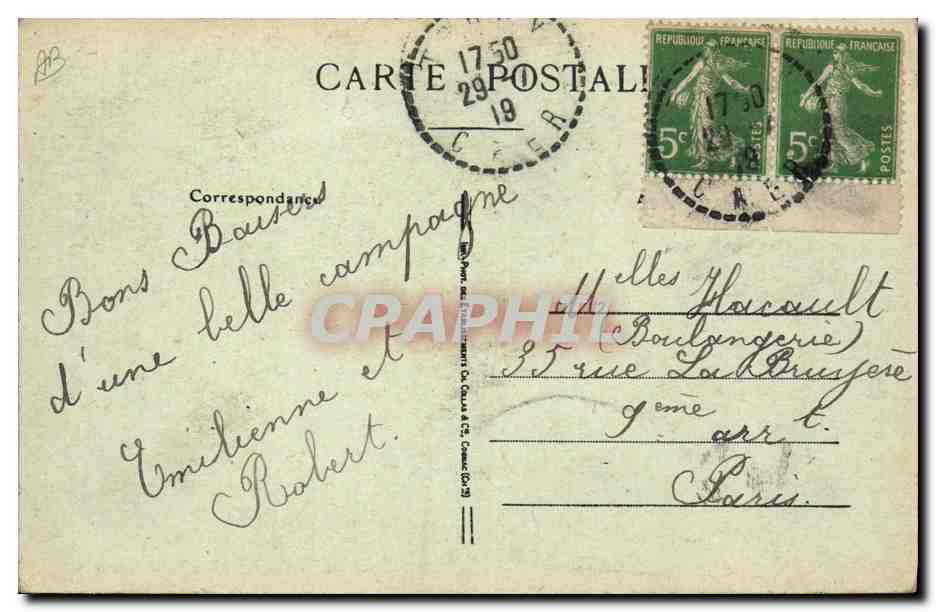 AB
CARTE POSTALE
17 50
29-1
19
C ER
REPUBLIQUE FRANÇAISE
5c
POSTES
REPUBLIQUE FRANÇAISE
5c
POSTES
17 50
19
C ER
Correspondance
Bons Baisers
d'une belle campagne
Emilienne et
Robert.
IMP. PHOT. DES ETABLISSEMENTS CH. COLLAS & Cie, COGNAC (Ch te)
Melles Hacault
(Boulangerie)
35 rue La Bruyère
9eme arr t.
Paris.
CPAPHIL